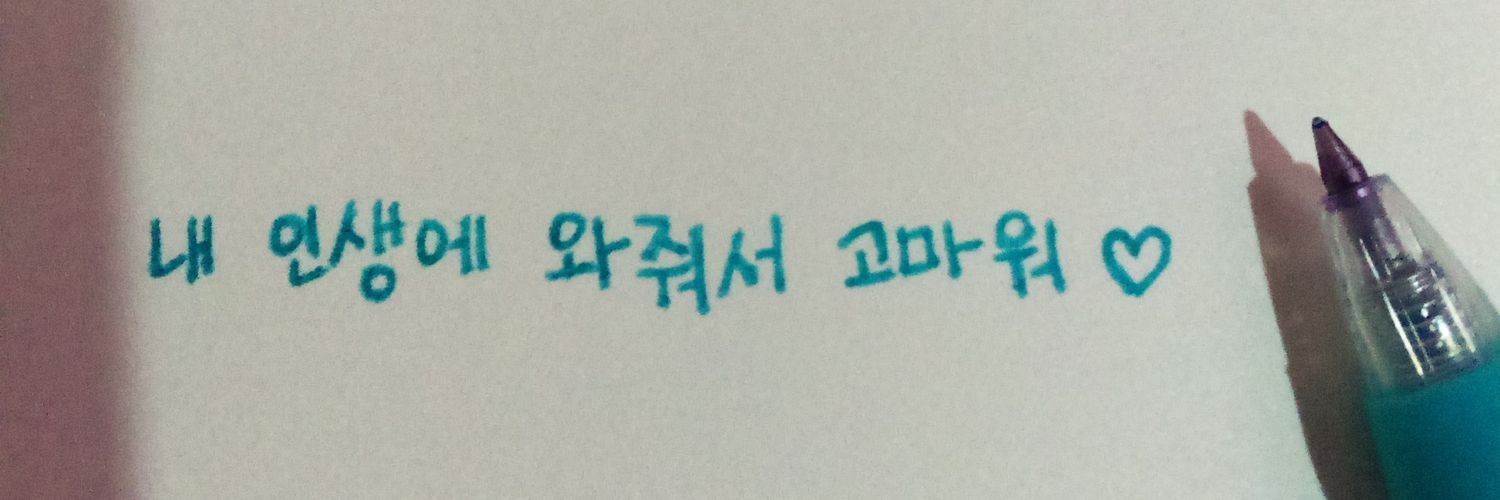 내 인생에 와줘서 고마워 ♡